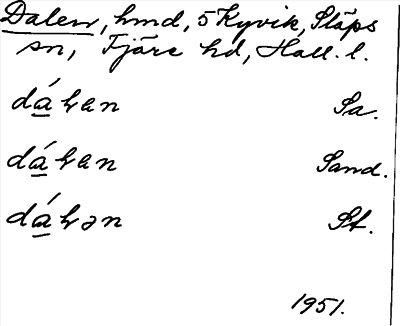 Dalen, hmd, 5 Kyvik, Släps
sn, Fjäre hd, Hall. l.
dáₕen Sa.
dáₕen Sand.
dáₕən St.
1951.